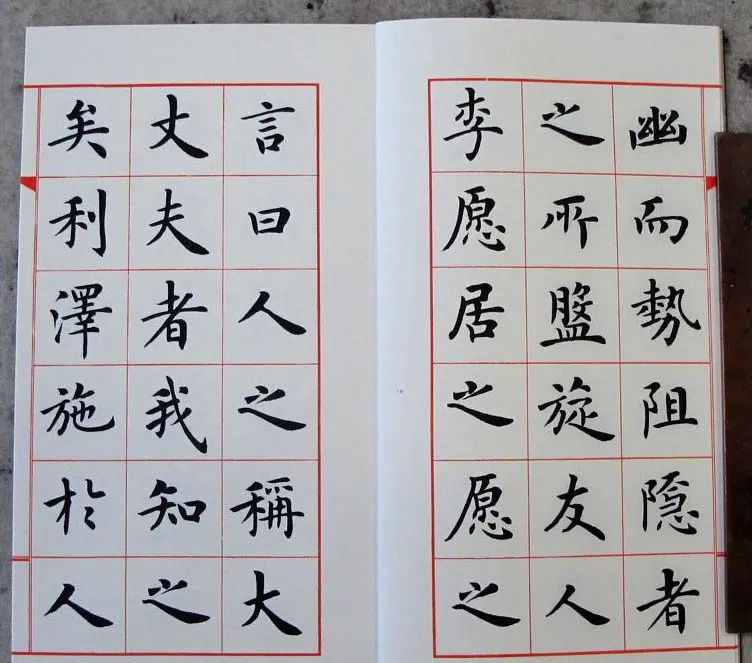 幽而勢阻隱者
之所盤旋友人
李愿居之愿之
言曰人之稱大
丈夫者我知之
矣利澤施於人